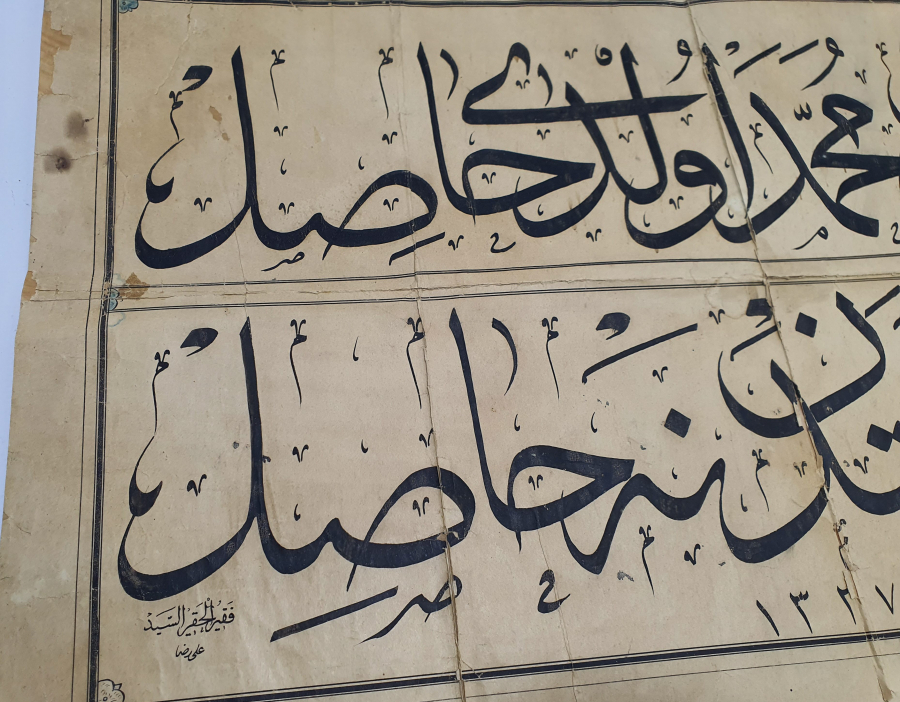 محمد اولدی حاصل
تدن نه حاصل
١٣٢٧
فقير الحقير السيد
على رضا